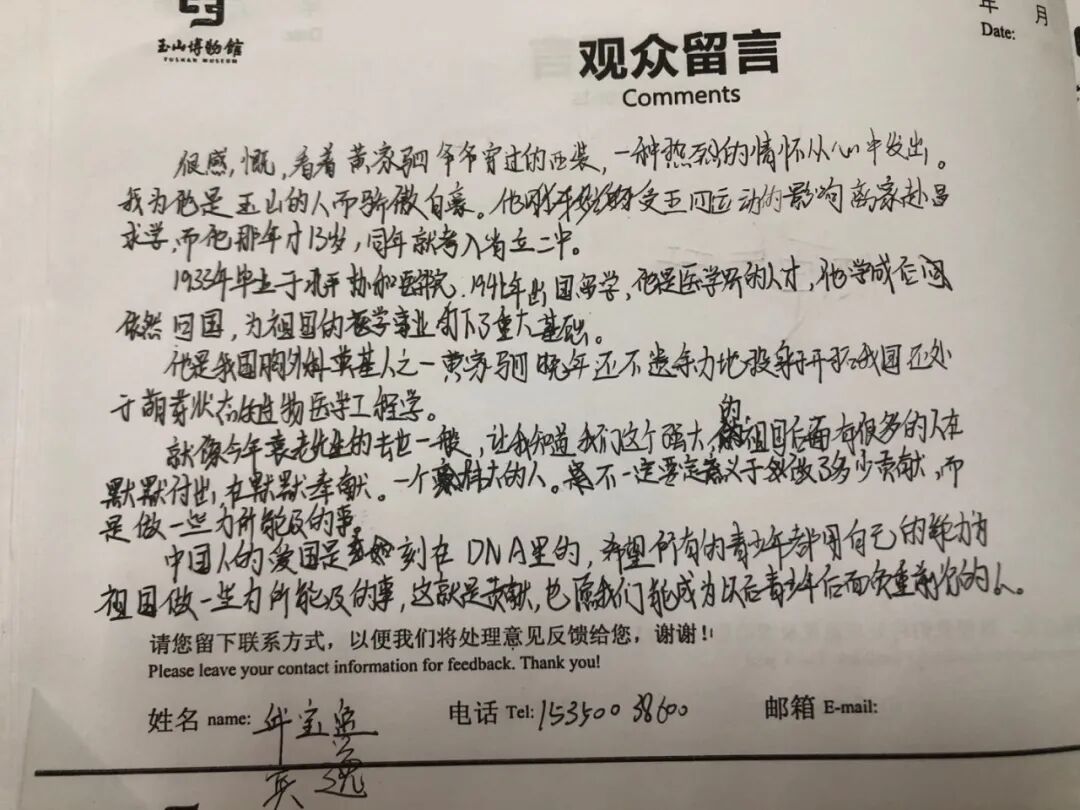 玉山博物馆
YUSHAN MUSEUM
年 月
Date:
观众留言
Comments
很感,慨,看着黄家驷爷爷穿过的西装,一种热烈的情怀从心中发出。
我为他是玉山的人而骄傲自豪。他受五四运动的影响离家赴昌
求学,而他那年才13岁,同年就考入省立二中。
1933年毕业于北平协和医院.1941年出国留学,他是医学界的人才,他学成后
依然回国,为祖国的医学事业打下了重大基础。
他是我国胸外科奠基人之一黄家驷晚年还不遗余力地投身开拓我国还处
于萌芽状态的生物医学工程学。
就像今年袁老先生的去世一般,让我知道我们这个强大的祖国后面有很多的人在
默默付出,在默默奉献。一个伟大的人。不一定要定义于做了多少贡献,而
是做一些力所能及的事。
中国人的爱国是刻在DNA里的,希望所有的青少年都用自己的能力为
祖国做一些力所能及的事,这就是贡献,也愿我们能成为以后青少年后面负重前行的人。
请您留下联系方式,以便我们将处理意见反馈给您,谢谢!
Please leave your contact information for feedback. Thank you!
姓名 name: 电话 Tel: 15350038600 邮箱 E-mail: